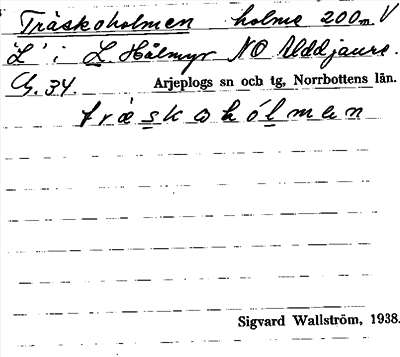 Träskoholmen holme 200m V
"L" i L. Hålmyr NO Uddjaure.
Cg. 34. Arjeplogs sn och tg, Norrbottens län.
træskohólmen
Sigvard Wallström, 1938.